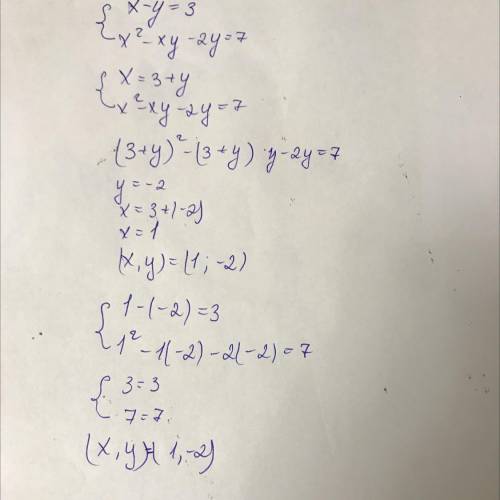 { x-y=3
x²-xy-2y=7
{ x=3+y
x²-xy-2y=7
(3+y)²-(3+y)·y-2y=7
y=-2
x=3+(-2)
x=1
(x,y)=(1;-2)
{ 1-(-2)=3
1²-1(-2)-2(-2)=7
{ 3=3
7=7.
(x,y)=(1,-2)